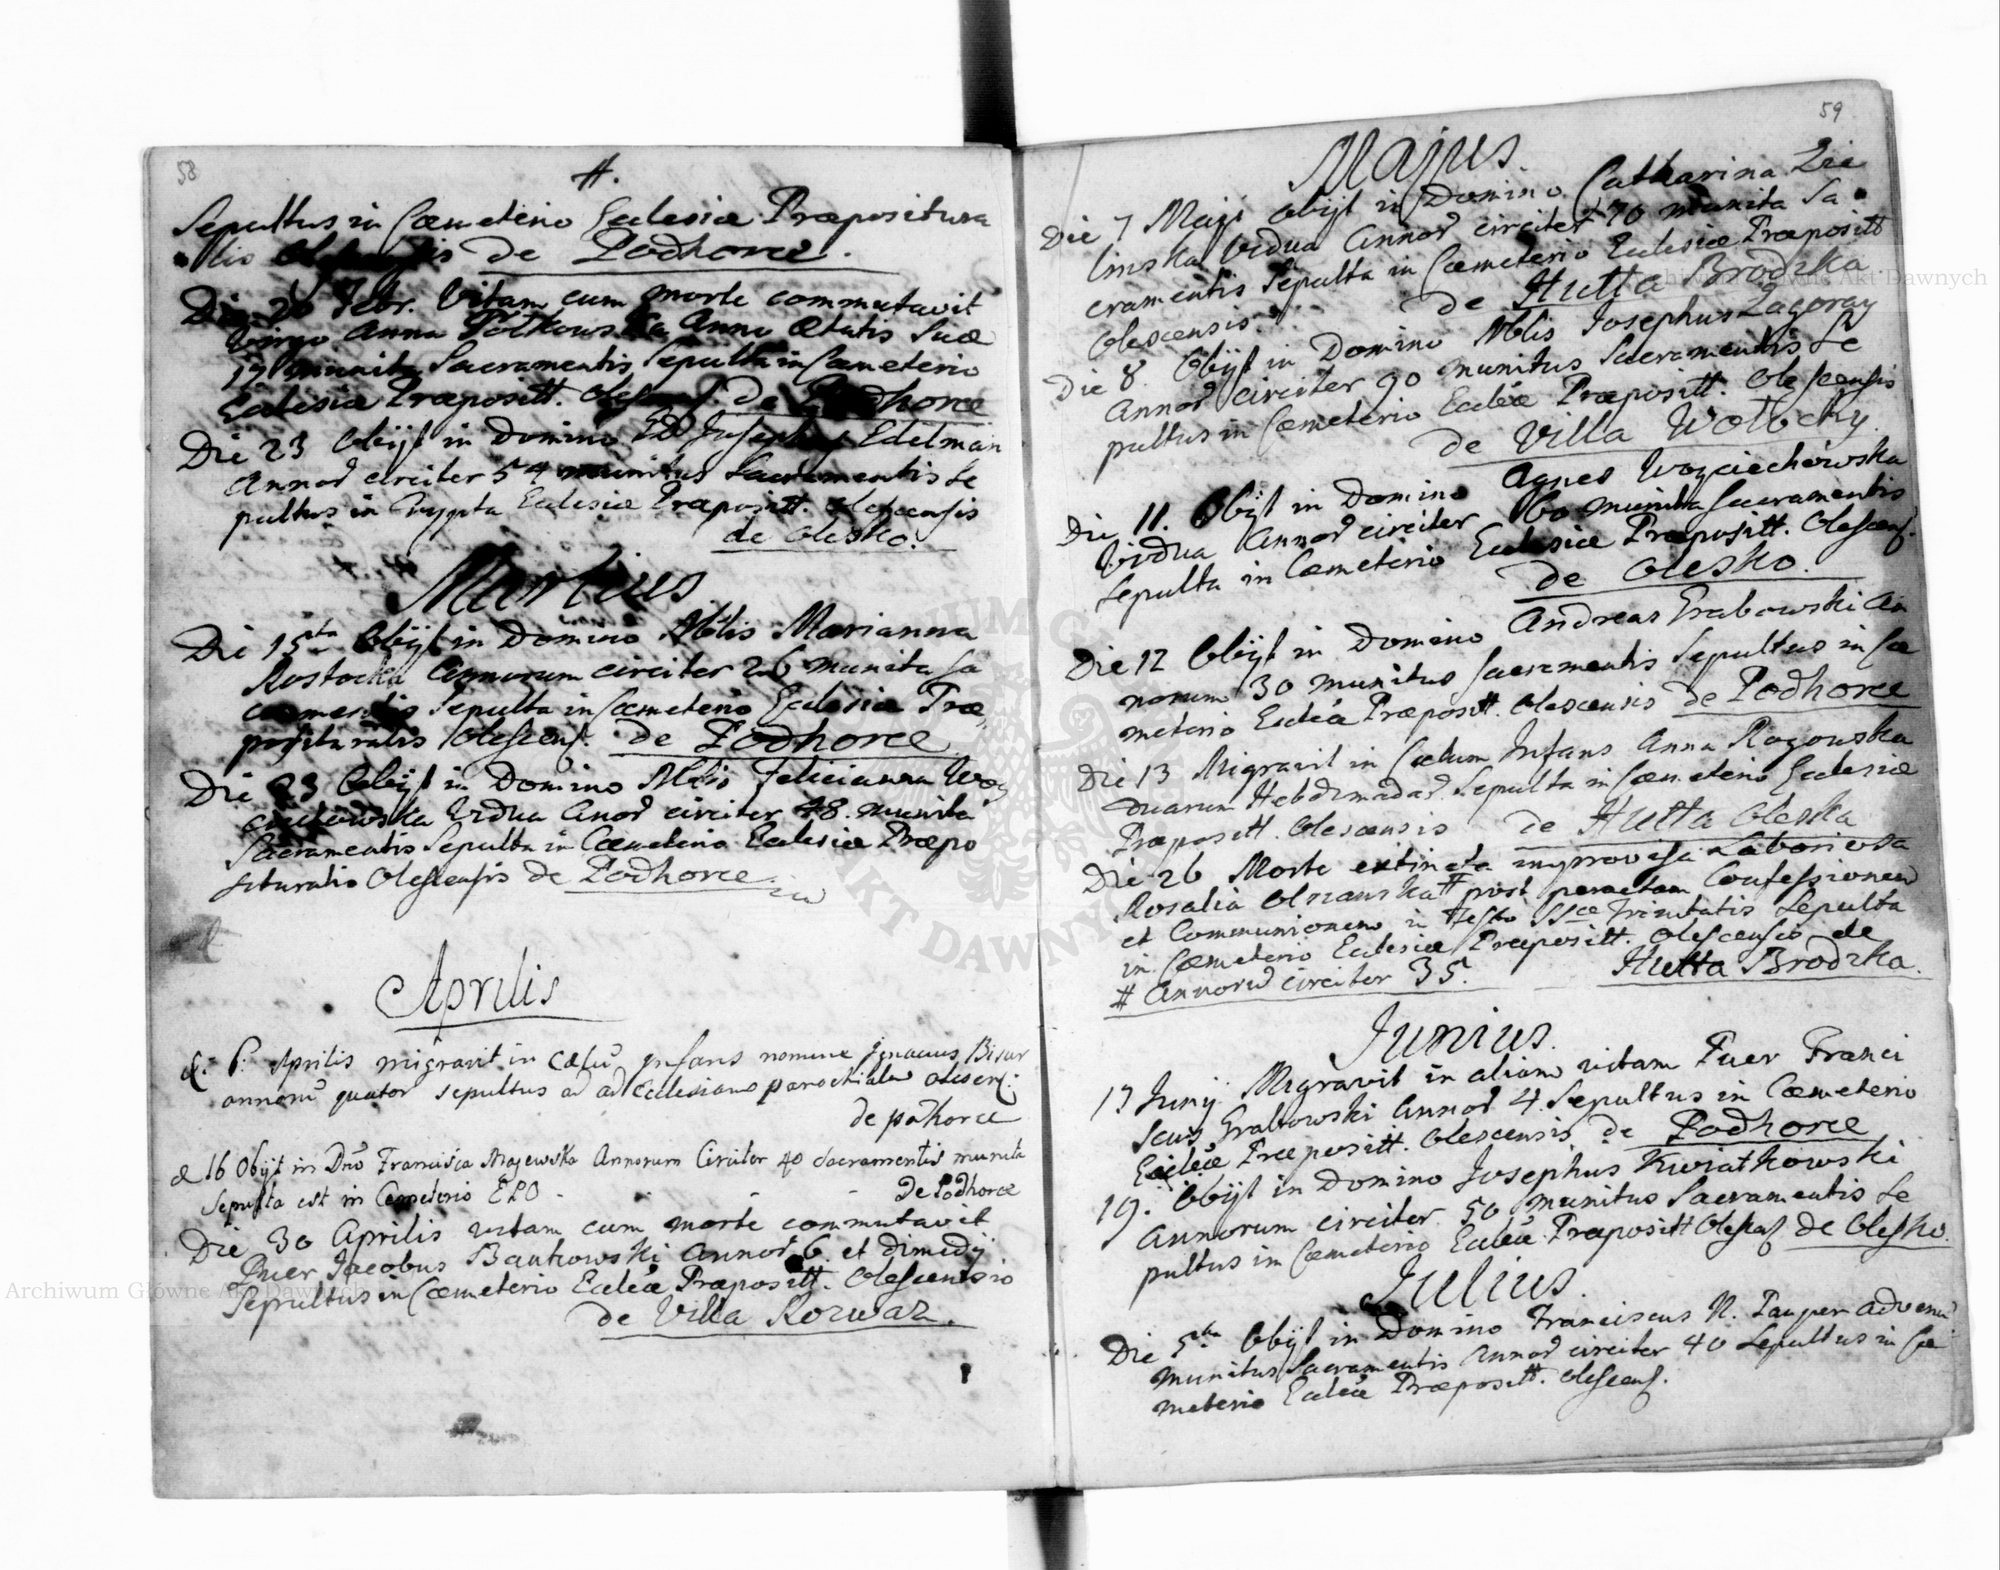 58
#.
Sepultus in Cæmeterio Ecclesiæ Præpositura
lis de Podhorce.
Die 20 Febr. Vitam cum morte commutavit
Virgo Anna Anno Ætatis Suæ
munita Sacramentis Sepulta in Cæmeterio
Ecclesiæ Præpositt. de Podhorce
Die 23 Obijt in Domino Josephus Edelman
Annor circiter 54 munitus Sacramentis Se
pultus in Crypta Ecclesiæ Præpositt. Olescensis
de Olesko.
Martius
Die 15ta Obijt in Domino Nblis Marianna
Rostocka Annorum circiter 26 munita Sa
cramentis Sepulta in Cæmeterio Ecclesiæ Præ
posituralis Olescens. de Podhorce
Die 23 Obijt in Domino Nblis Felicianna Woy
ciechowska Vidua Anor circiter 48. munita
Sacramentis Sepulta in Cæmeterio Ecclesiæ Præpo
situralis Olescensis de Podhorce
Aprilis
d. 6. Aprilis migravit in cælū infans nomine Ignacius Bisur
annorū quator sepultus ad Ecclesiam parochialem olescen:
de podhorce
d 16 Obijt in Dno Francisca Majewska Annorum Circiter 40 Sacramentis munita
Sepulta est in Cæmeterio EPO - - - de Podhorce
Die 30 Aprilis vitam cum morte commutavit
Puer Jacobus Bankowski Annor 6 et dimedij
Sepultus in Cæmeterio Eccleæ Præpositt. Olescensis
de Villa Rozwaz.
59
Majus.
Die 7 Maji Obijt in Domino Catharina Zie
linska Vidua Annor circiter 70 munita Sa
cramentis Sepulta in Cæmeterio Ecclesiæ Præpositt
Olescensis. de Hutta Brodzka.
Die 8. Obijt in Domino Nblis Josephus Zagoray
Annor circiter 90 munitus Sacramentis Se
pultus in Cæmeterio Eccleæ Præpositt. Olescensis
de Villa Wolochy.
Die 11. Obijt in Domino Agnes Woyciechowska
Vidua Annor circiter 60 munita Sacramentis
Sepulta in Cæmeterio Ecclesiæ Præpositt. Olescens.
de Olesko.
Die 12 Obijt in Domino Andreas Grabowski An
norum 30 munitus Sacramentis Sepultus in Cæ
meterio Eccleæ Præpositt. Olescensis de Podhorce
Die 13 Migravit in Cælum Infans Anna Rogowska
duarum Hebdomadar. Sepulta in Cæmeterio Ecclesiæ
Præpositt. Olescensis de Hutta Oleska
Die 26 Morte extincta improvisa Laboriosa
Rosalia Olszanska # post peractam Confessionem
et Communionem in Festo SScæ Trinitatis Sepulta
in Cæmeterio Ecclesiæ Præpositt. Olescensis de
# Annorū circiter 35. Hutta Brodzka.
Junius.
17 Junij Migravit in aliam vitam Puer Franci
scus Grabowski Annor 4 Sepultus in Cæmeterio
Eccleæ Præpositt. Olescensis de Podhorce
19. Obijt in Domino Josephus Kwiatkowski
Annorum circiter 50 munitus Sacramentis Se
pultus in Cæmeterio Eccleæ Præpositt Olescens de Olesko.
Julius.
Die 5ta Obijt in Domino Franciscus N. Pauper advena
munitus Sacramentis Annor circiter 40 Sepultus in Cæ
meterio Eccleæ Præpositt. Olescens.
Archiwum Główne Akt Dawnych
Archiwum Główne Akt Dawnych